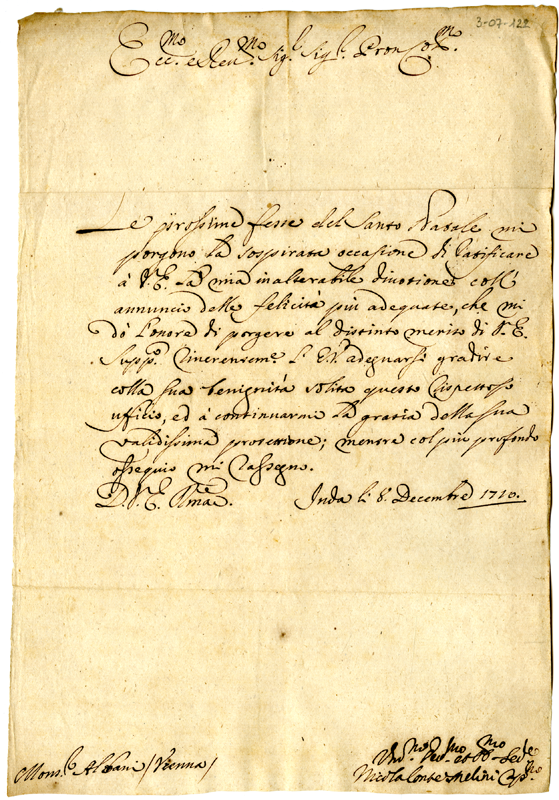 3-07-122
Ecc.mo e Rev.mo Sig.r Sig.r Pron Col.mo
Le prossime feste del Santo Natale mi
porgono la sospirata occasione di ratificare
à V.E. la mia inalterabile divotione coll'
annuncio delle felicità più adequate, che mi
dò l'onore di porgere al distinto merito di V.E.
Supp.o riverentem.e l' E.V. à degnarsi gradire
colla sua benignità solita questo rispettoso
ufficio, ed à continuarmi la gratia della sua
validissima protettione; mentre col più profondo
ossequio mi rassegno.
D.V.E. Rma. Li 8 Decembre 1710.
Mons.r Albani / Vienna /
Nicola Conte